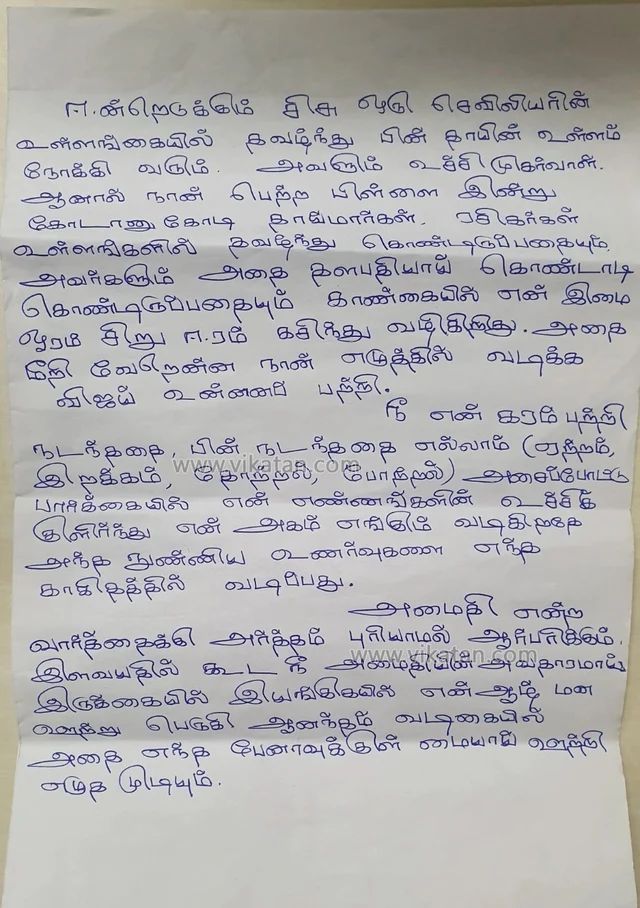 ஈன்றெடுக்கும் சிசு ஒரு செவிலியரின்
உள்ளங்கையில் தவழ்ந்து பின் தாயின் உள்ளம்
நோக்கி வரும். அவளும் உச்சிமுகர்வாள்.
ஆனால் நான் பெற்ற பிள்ளை இன்று
கோடானுகோடி தாய்மார்கள், ரசிகர்கள்
உள்ளங்களில் தவழ்ந்து கொண்டிருப்பதையும்,
அவர்களும் அதை தளபதியாய் கொண்டாடி
கொண்டிருப்பதையும் காண்கையில் என் இமை
ஓரம் சிறு ஈரம் கசிந்து வழிகிறது. அதை
மீறி வேறென்ன நான் எழுத்தில் வடிக்க
விஜய் உன்னைப் பற்றி.
நீ என் கரம் பற்றி
நடந்ததை, பின் நடந்ததை எல்லாம் (ஏற்றம்,
இறக்கம், தோற்றல், போற்றல்) அசைப்போட்டு
பார்க்கையில் என் எண்ணங்களின் உச்சிக்
குளிர்ந்து என் அகம் எங்கும் வடிகிறதே
அந்த நுண்ணிய உணர்வுகளை எந்த
காகிதத்தில் வடிப்பது.
அமைதி என்ற
வார்த்தைக்கு அர்த்தம் புரியாமல் ஆர்பரிக்கும்
இளவயதில் கூட நீ அமைதியின் அவதாரமாய்
இருக்கையில் இயங்கிகயில் என் ஆழ் மன
ஊற்று பெருகி ஆனந்தம் வடிகையில்
அதை எந்த பேனாவுக்குள் மையாய் ஊற்றி
எழுத முடியும்.
www.vikatan.com
www.vikatan.com